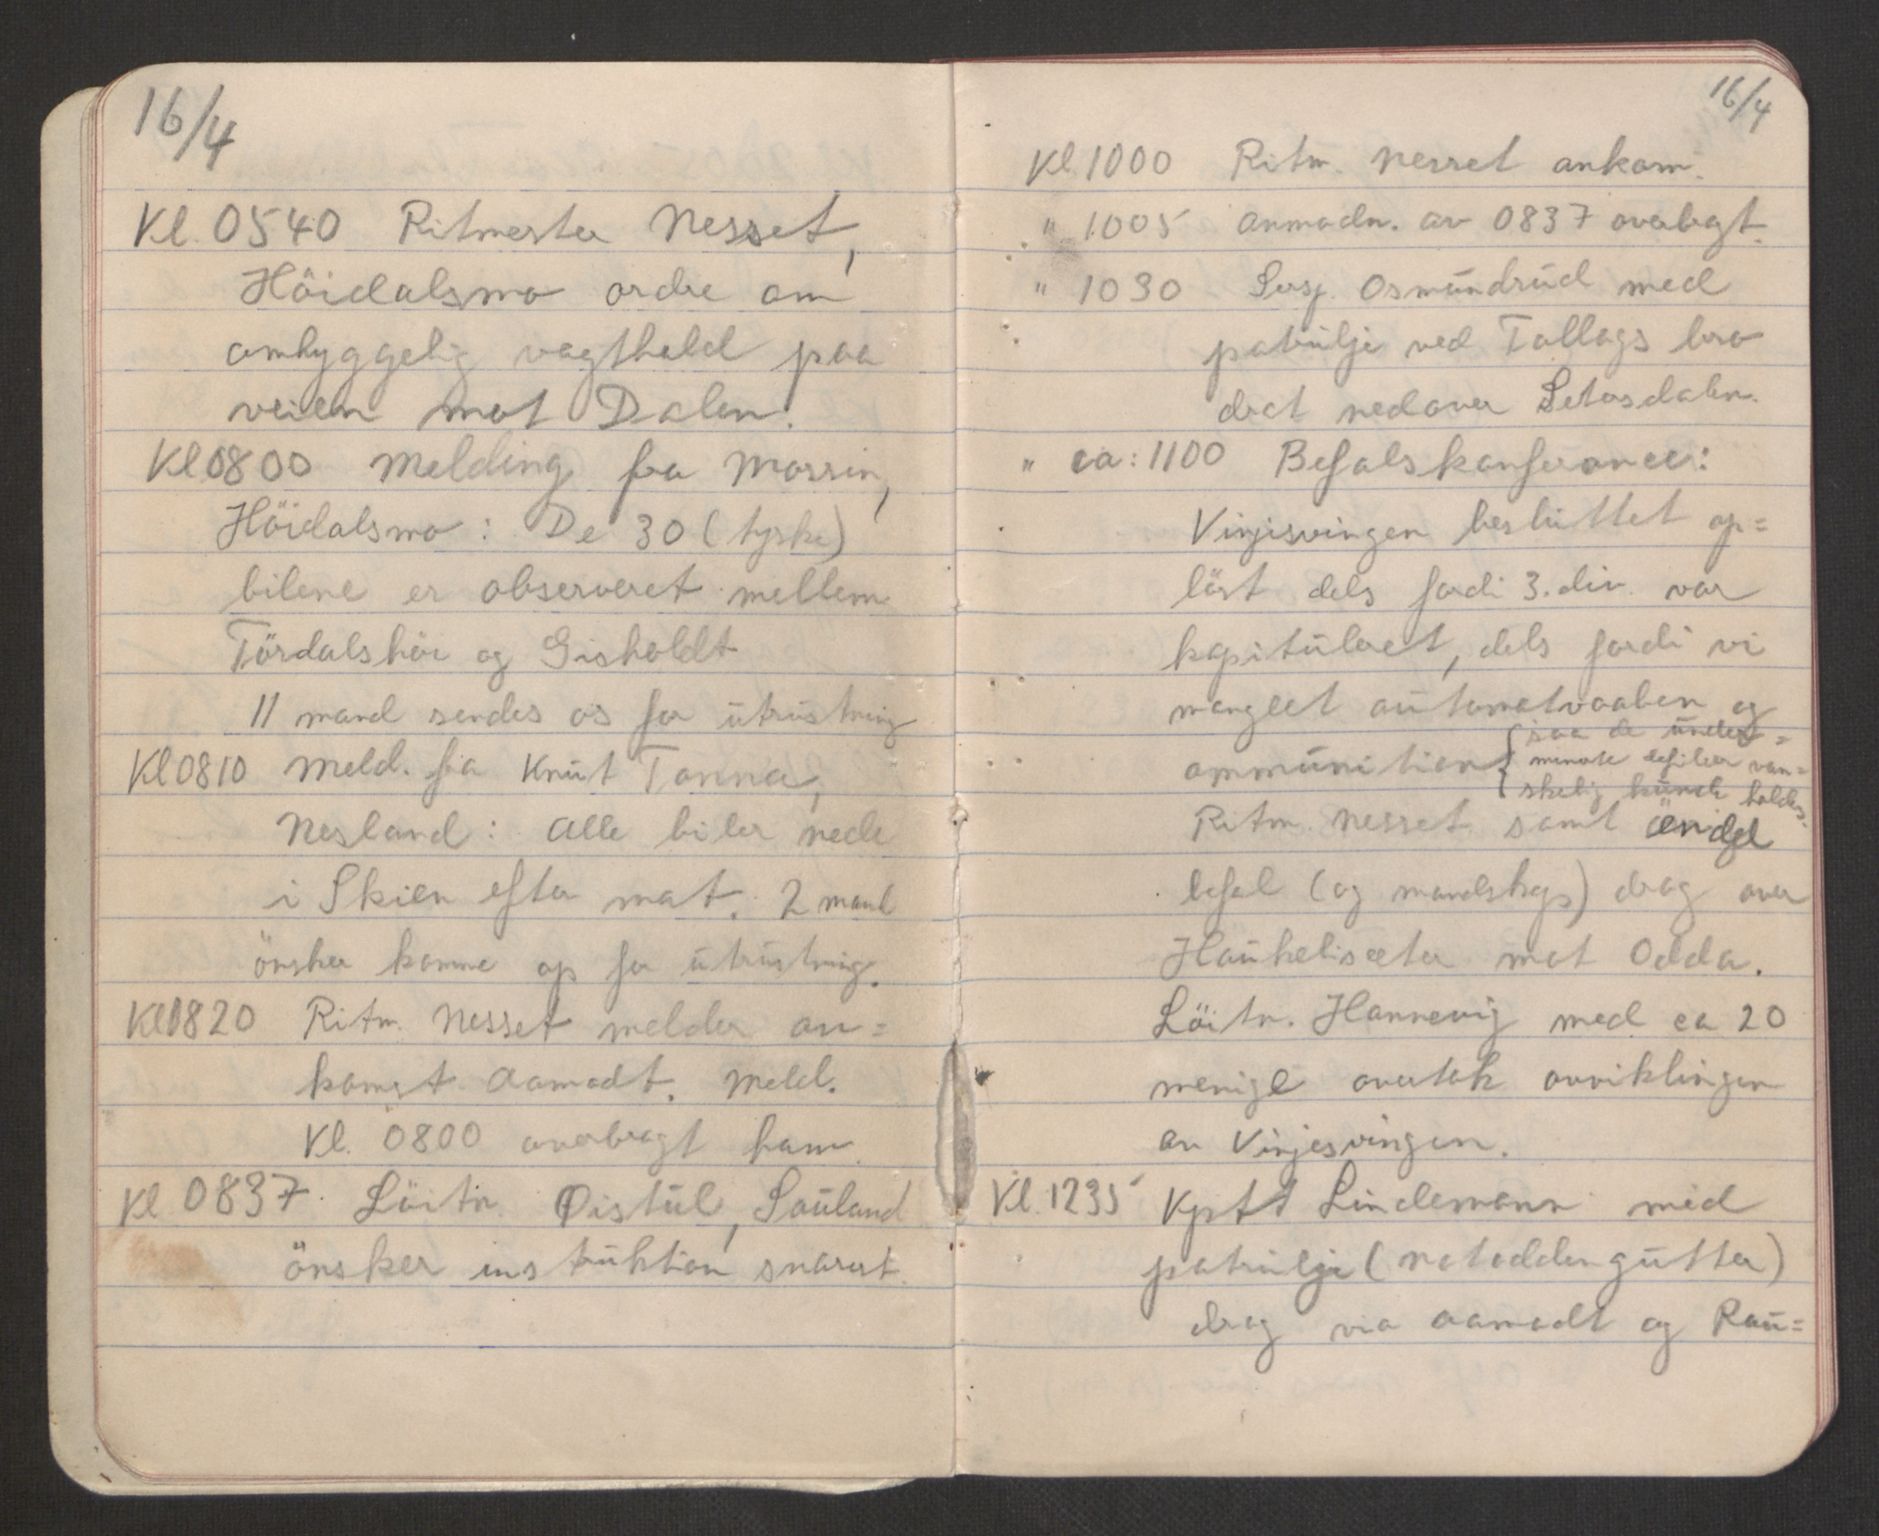 16/4
Kl. 0540 Ritmester Nesset,
Höidalsmo ordre om
omhyggelig vagthold paa
veien mot Dalen.
Kl 0800 Melding fra Mossin,
Höidalsmo: De 30 (tyske)
bilene er observeret mellem
Tördalshöi og Gisholdt
11 mand sendes os for utrustning
Kl 0810 Meld. fra Knut Tonna,
Nesland: Alle biler nede
i Skien efter mat. 2 mand
önsker komme op for utrustning.
Kl 0820 Ritm. Nesset melder an=
komst Aamodt. Meld.
Kl. 0800 overbragt ham.
Kl 0837. Löitn. Øistul, Sauland
önsker instruktion snarest.
16/4
Kl. 1000 Ritm. Nesset ankom.
" 1005 Anmodn. av 0837 overbragt.
" 1030 Sersj. Osmundrud med
patrulje ved Tallags bro
drat nedover Setesdalen.
" ca: 1100 Befalskonferance:
Vinjesvingen besluttet op=
löst dels fordi 3. div. var
kapituleret, dels fordi vi
manglet automatvaaben og
ammunition { saa de under=
minerte defileer van=
skelig kunde holdes.
Ritm. Nesset samt endel
befal (og mandskap) drog over
Haukeliseter mot Odda.
Löitn. Hannevig med ca 20
menige overtok avviklingen
av Vinjesvingen.
Kl. 1235 Kptt Lindemann med
patrulje (Notodden gutter)
drog via Aamodt og Rau=